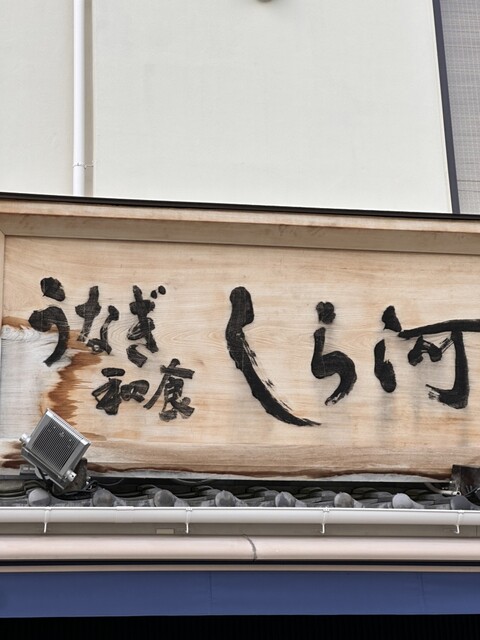 うなぎ
和食
しら河